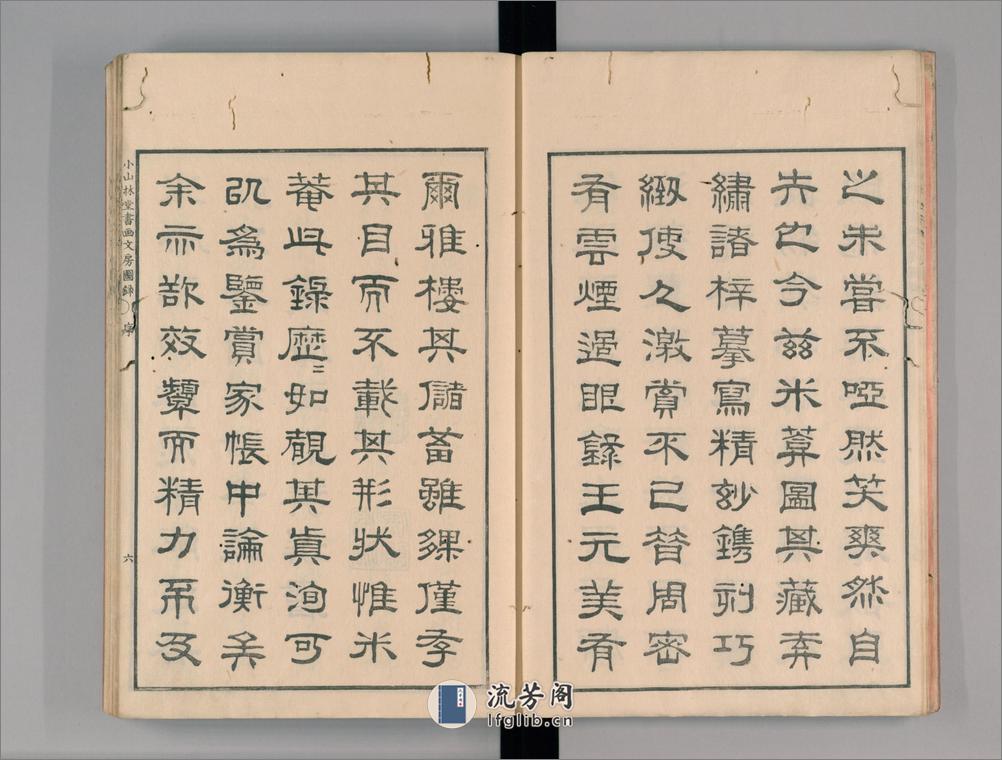 之未嘗不啞然笑爽然自
失也今茲米葊圖其藏弆
繡諸梓摹寫精妙鐫刻巧
緻使人激賞不已昔周密
有雲煙過眼錄王元美有
爾雅樓其儲蓄雖夥僅存
其目而不載其形狀惟米
菴此錄歷〻如覩其眞洵可
以爲鑒賞家帳中論衡矣
余亦欲效顰而精力不及
小山林堂書画文房圖錄 序 六
流芳阁
lfglib.cn